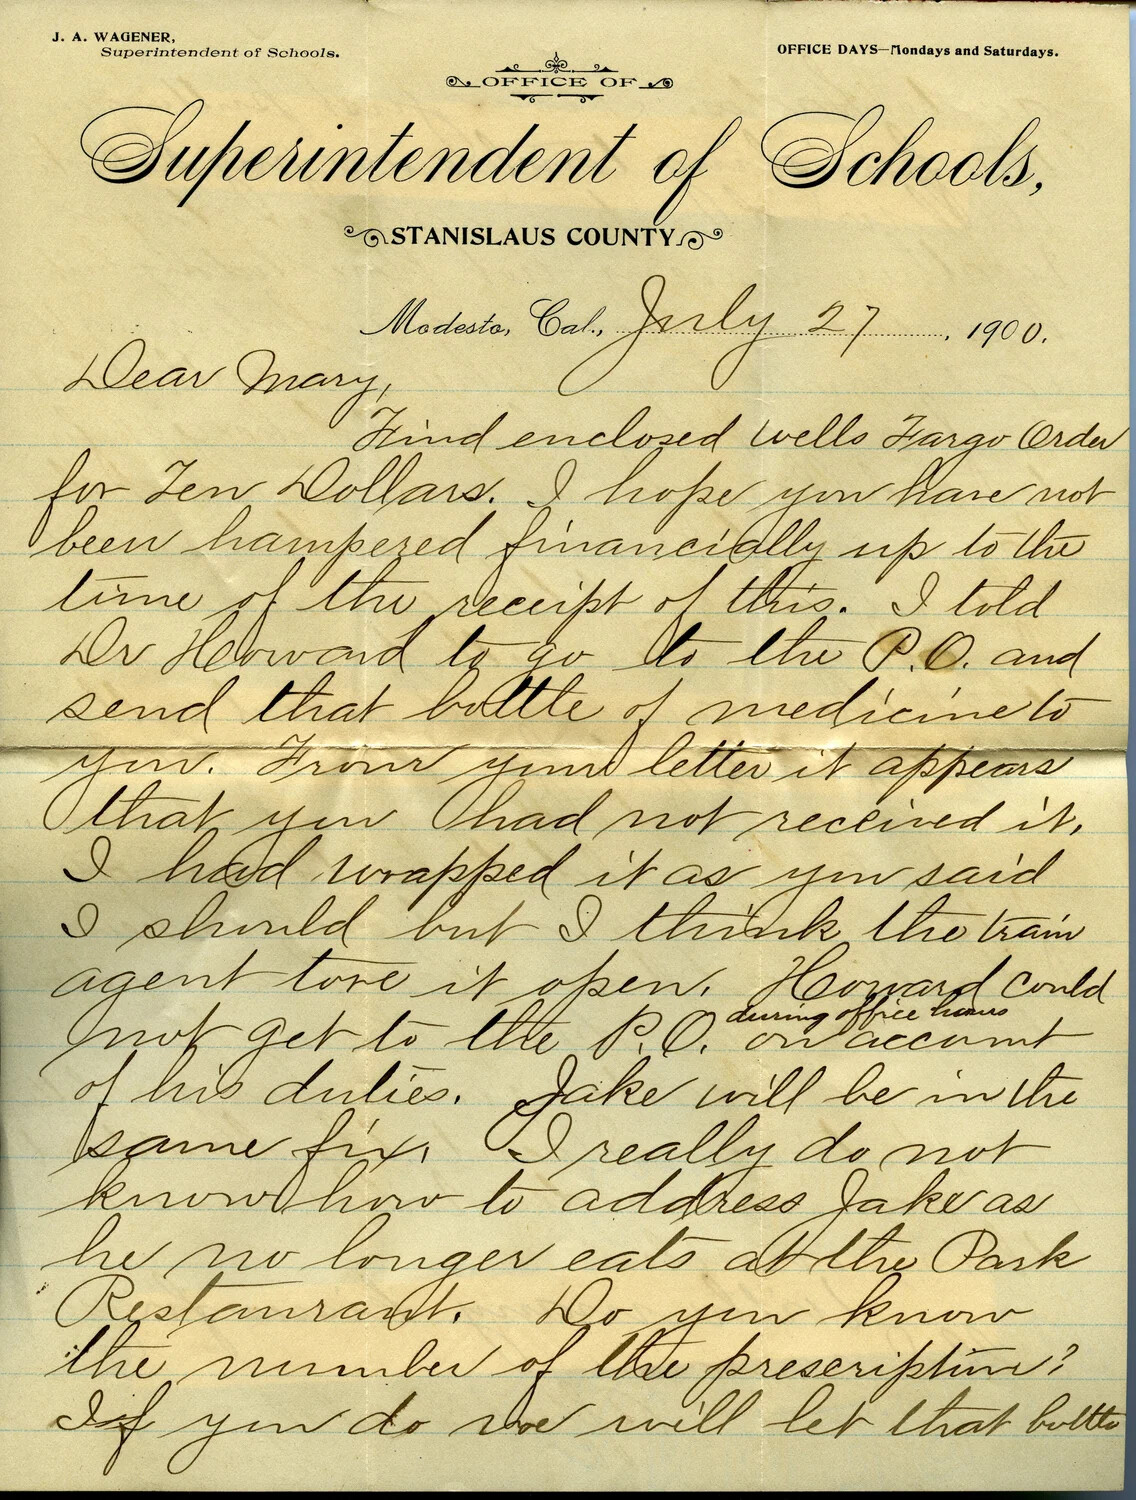 J. A. WAGENER,
Superintendent of Schools.
OFFICE DAYS—Mondays and Saturdays.
OFFICE OF
Superintendent of Schools,
STANISLAUS COUNTY
Modesto, Cal., July 27, 1900.
Dear Mary,
Find enclosed Wells Fargo Order
for Ten Dollars. I hope you have not
been hampered financially up to the
time of the receipt of this. I told
Dr Howard to go to the P.O. and
send that bottle of medicine to
you. From your letter it appears
that you had not received it.
I had wrapped it as you said
I should but I think the train
agent tore it open. Howard could
during office hours
not get to the P.O. on account
of his duties. Jake will be in the
same fix. I really do not
know how to address Jake as
he no longer eats at the Park
Restaurant. Do you know
the number of the prescription?
If you do we will let that bottle